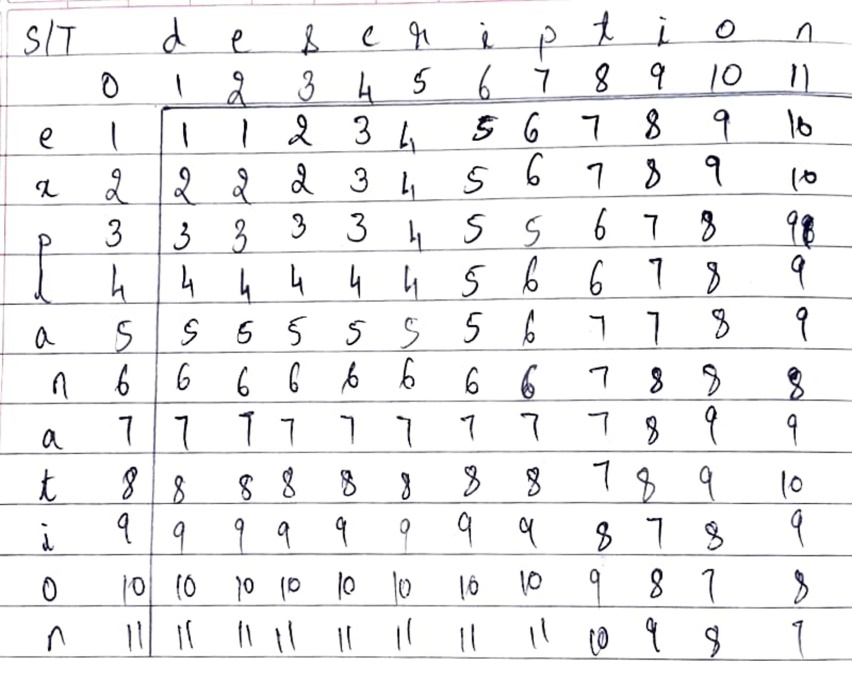 S/T d e s c r i p t i o n
0 1 2 3 4 5 6 7 8 9 10 11
e 1 1 1 2 3 4 5 6 7 8 9 10
x 2 2 2 2 3 4 5 6 7 8 9 10
p 3 3 3 3 3 4 5 5 6 7 8 9
l 4 4 4 4 4 4 5 6 6 7 8 9
a 5 5 5 5 5 5 5 6 7 7 8 9
n 6 6 6 6 6 6 6 6 7 8 8 8
a 7 7 7 7 7 7 7 7 7 8 9 9
t 8 8 8 8 8 8 8 8 7 8 9 10
i 9 9 9 9 9 9 9 9 8 7 8 9
o 10 10 10 10 10 10 10 10 9 8 7 8
n 11 11 11 11 11 11 11 11 10 9 8 7